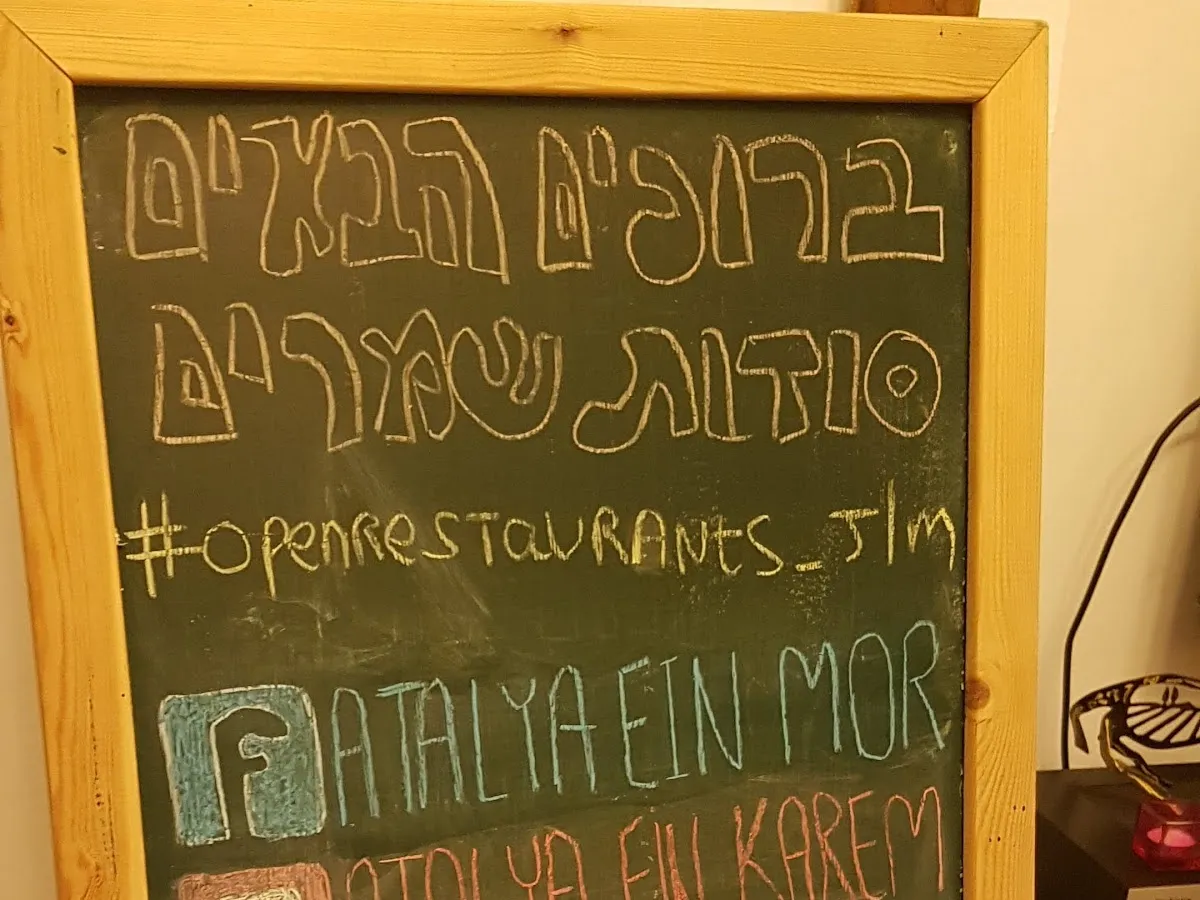 ברוכים הבאים
סודות שמרים
#openRestaurants_Jlm
f ATALYA EIN MOR
ATALYA EIN KAREM